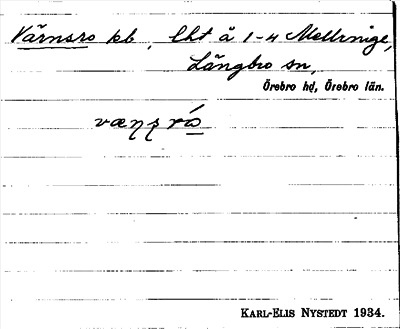 Värnsro kb, lht å 1-4 Mellringe,
Längbro sn,
Örebro hd, Örebro län.
KARL-ELIS NYSTEDT 1934.